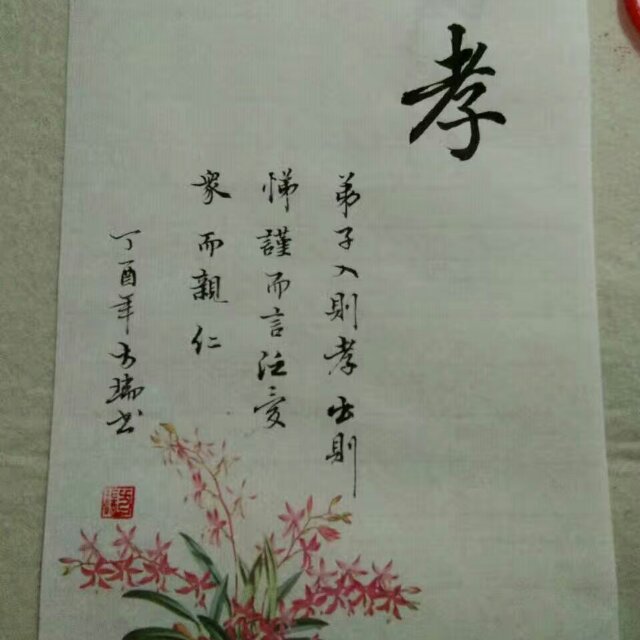 孝
弟子入則孝出則
悌謹而言泛愛
眾而親仁
丁酉年